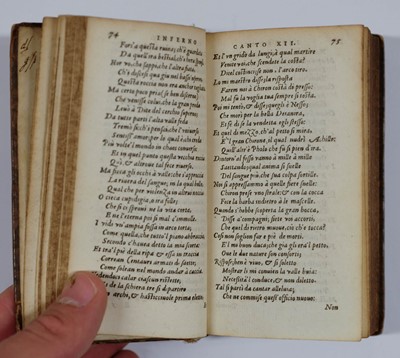 74 INFERNO
Forse a questa ruina; ch'è guarda
Da quell'ira bestial, ch'i hora spensi.
Hor vo, che sappi, che l'altra fiata,
Ch'i discesi qua giu nel basso inferno,
Questa roccia non era anchor
Ma certo poco pria, se ben discerno,
Che venisse colui, che la gran preda
Levò à Dite del cerchio superno;
Da tutte parti l'alta valle feda
Tremò sì, ch'i pensai, che l'universo
Sentisse amor; per lo qual è chi creda
Piu volte il mondo in chaos converso:
Et in quel punto questa vecchia roccia
Qui, et altrove tal fece riverso.
Ma ficca gli occhi à valle: che s'approccia
La riviera del sangue; in la qual bolle
Qual che per violenza in altrui noccia.
O cieca cupidigia, o ira folle;
Che sì ci sproni ne la vita corta,
E ne l'eterna poi sì mal c'immolle.
I vidi un'ampia fossa in arco torta,
Come quella, che tutto'l piano abbraccia;
Secondo c'havea detto la mia scorta:
Et tra'l piè de la ripa et essa in traccia
Correan Centauri armati di saette;
Come solean nel mondo andare à caccia.
Vedendoci calar ciascun ristette;
E de la schiera tre si dipartiro
Con archi, et hasticciuole prima elette:
CANTO XII. 75
Et l'un gridò da lungi, à qual martiro
Venite voi, che scendete la costa?
Ditel costinci; se non, l'arco tiro.
Lo mi maestro disse; la risposta
Farem noi à Chiron costà di presso:
Mal fu la voglia tua sempre sì tosta.
Poi mi tentò, et disse; quegli è Nesso;
Che morì per la bella Deianira,
Et fe di se la vendetta egli stesso:
Et quel di mezzo, ch'al petto si mira,
E'l gran Chirone, il qual nudrì Achille:
Quell'altr'è Pholo che fu sì pien d'ira.
Dintorno al fosso vanno à mille à mille
Saettando, qual anima si svelle
Del sangue più, che sua colpa sortille.
Noi ci appressammo à quelle fiere snelle:
Chiron prese uno strale; et con la cocca
Fece la barba indietro à le mascelle.
Quando s'hebbe scoperta la gran bocca,
Disse à compagni; siete voi accorti,
Che quel di retro muove, ciò ch'e tocca?
Così non soglion far i piè de morti.
E'l mio buon duca; che gia gli era'l petto,
Ove le due nature son consorti;
Rispose, ben è vivo, et sì soletto
Mostrar li mi convien la valle buia:
Necessità'l conduce, et non diletto.
Tal si partì da cantar alleluia;
Che ne commise quest'officio nuovo:
Non